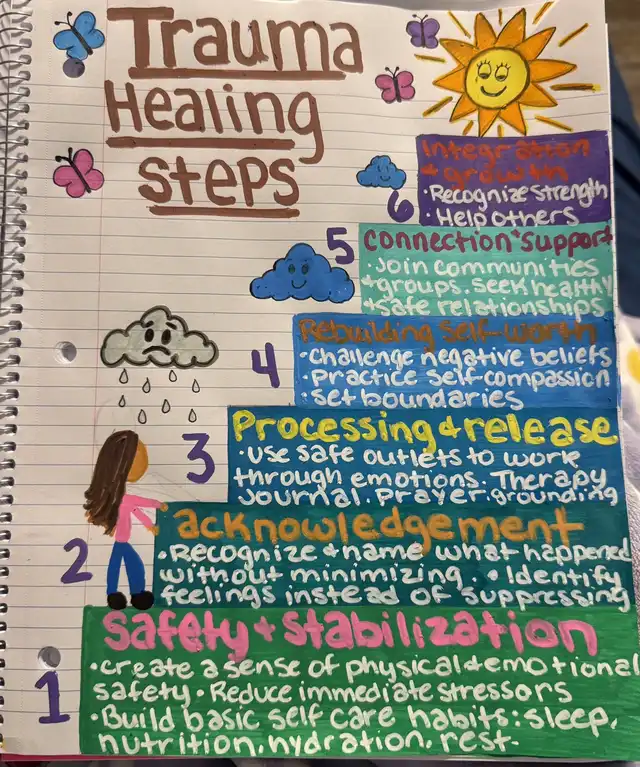 Trauma
Healing
steps
Integration
+ growth
• Recognize strength
• Help others
6
5
connection + support
• Join communities
+ groups. seek healthy
+ safe relationships
4
Rebuilding self-worth
• challenge negative beliefs
• Practice self-compassion
• set boundaries
3
Processing + release
• use safe outlets to work
through emotions. Therapy
Journal. Prayer. grounding
2
acknowledgement
• Recognize + name what happened
without minimizing. • Identify
feelings instead of suppressing
1
safety + stabilization
• create a sense of physical + emotional
safety • Reduce immediate stressors
• Build basic self care habits: sleep,
nutrition, hydration, rest.